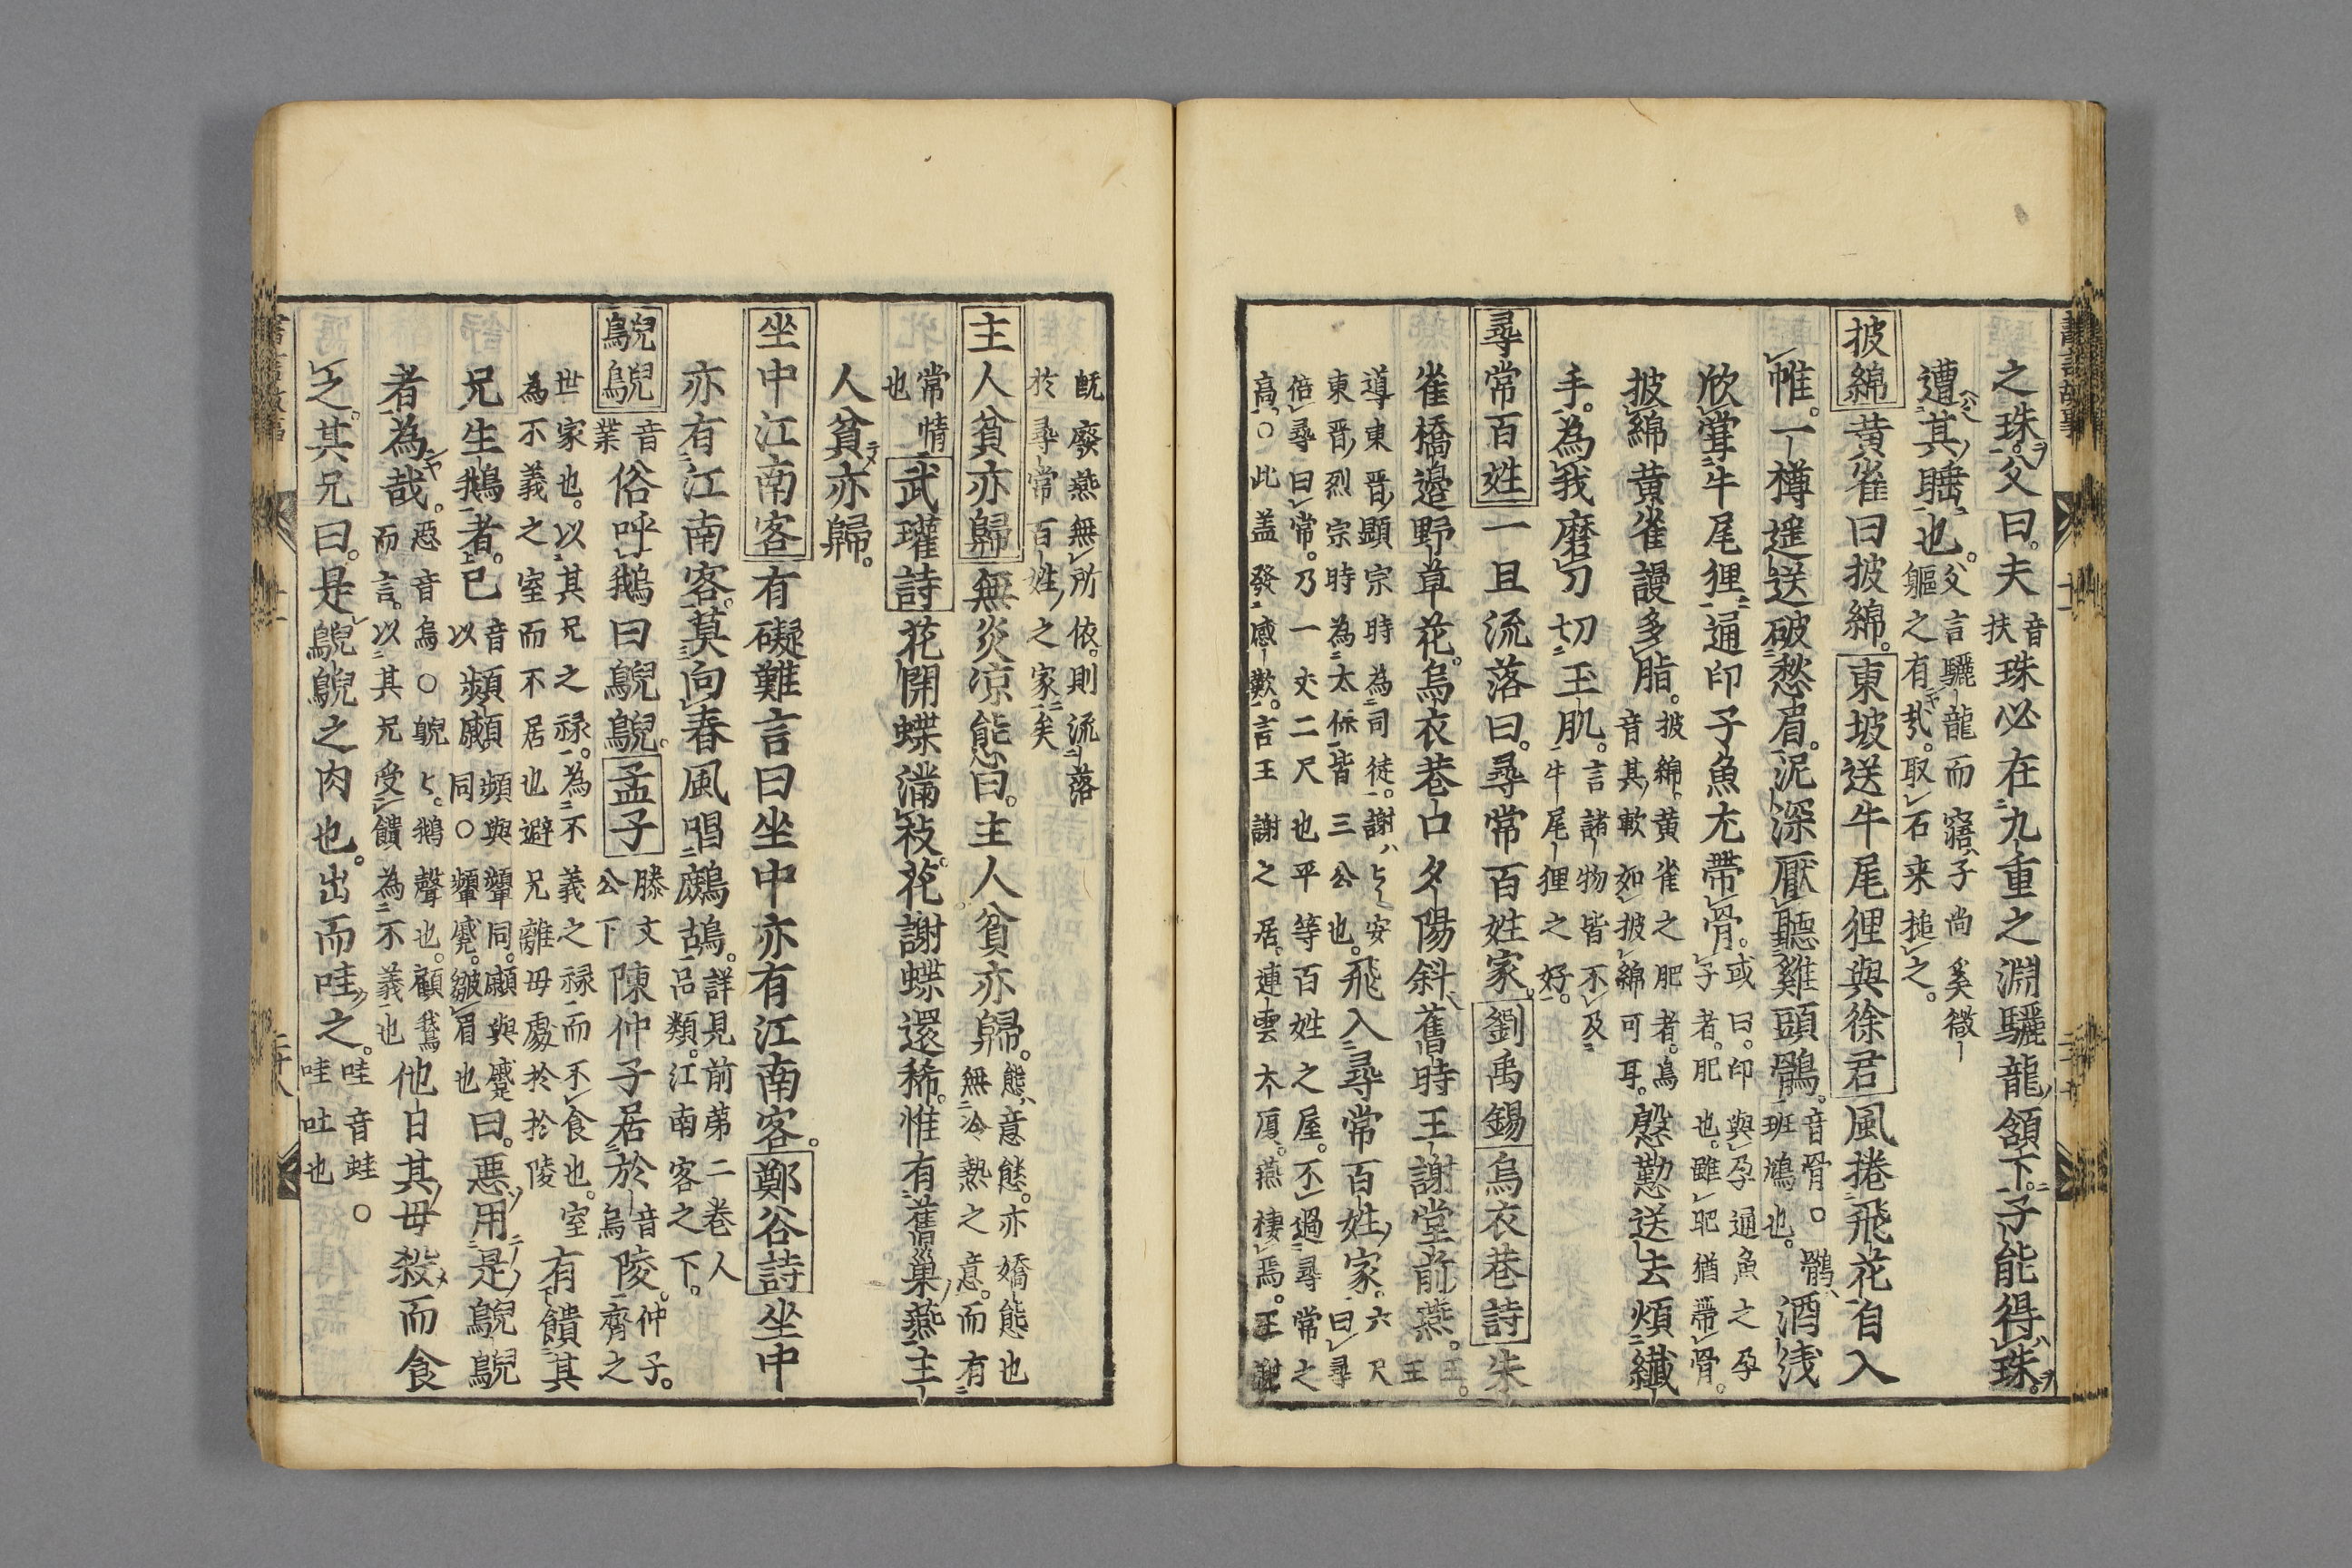 之珠。父曰。夫音扶珠必在九重之淵驪龍頷下。子能得珠。
遭其睡也。父言驪龍而寤子尚奚微軀之有㢤。取石来搥之。
披綿黄雀曰披綿。東坡送牛尾狸與徐君風捲飛花自入
帷。一樽遥送破愁眉。泥深厭聽雞頭鶻。音骨。○鶻、班鳩也。酒浅
欣甞牛尾狸通印子魚尤帶骨。或曰。印與孕通魚之孕子者。肥也。雖肥猶帶骨。
披綿黄雀謾多脂。披綿。黄雀之肥者。烏音其軟如披綿可耳。慇懃送去煩纎
手。為我磨刀切玉肌。言諸物皆不及牛尾狸之好。
尋常百姓一旦流落曰。尋常百姓家。劉禹錫烏衣巷詩朱
雀橋邉野草花。烏衣巷口夕陽斜舊時王謝堂前燕。王王
導東晋顯宗時為司徒。謝ヒ安東晋烈宗時為太保皆三公也。飛入尋常百姓家。六尺曰尋
倍尋曰常。乃一丈二尺也平等百姓之屋。不過尋常之高。○此盖發感歎。言王謝之居。連雲大厦。燕棲焉。王謝
既廢燕無所依。則流落於尋常百姓之家矣
主人貧亦歸無炎凉態曰。主人貧亦歸。態、意態。亦嬌態也無冷熱之意。而有
常情也武瓘詩花開蝶滿枝。花謝蝶還稀。惟有舊巢燕主
人貧亦歸。
坐中江南客有礙難言曰坐中亦有江南客。鄭谷詩坐中
亦有江南客。莫向春風唱鷓鴣。詳見前苐二巻人品類。江南客之下。
鶃鶃音業俗呼鵝曰鶃鶃。孟子滕文公下陳仲子居於音烏陵。仲子。齊之
世家也。以其兄之禄。為不義之禄而不食也。室為不義之室而不居也避兄離母處於於陵有饋其
兄生鵝者。已音以頻顣頻與顰同。顣與蹙同○顰蹙。皺眉也曰。悪用是鶃鶃
者為哉。悪音烏○鶃ヒ。鵝聲也。顧鵞而言。以其兄受饋為不義也他日其母殺而食
之。其兄曰。是鶃鶃之肉也。出而哇之。哇音蛙○哇吐也